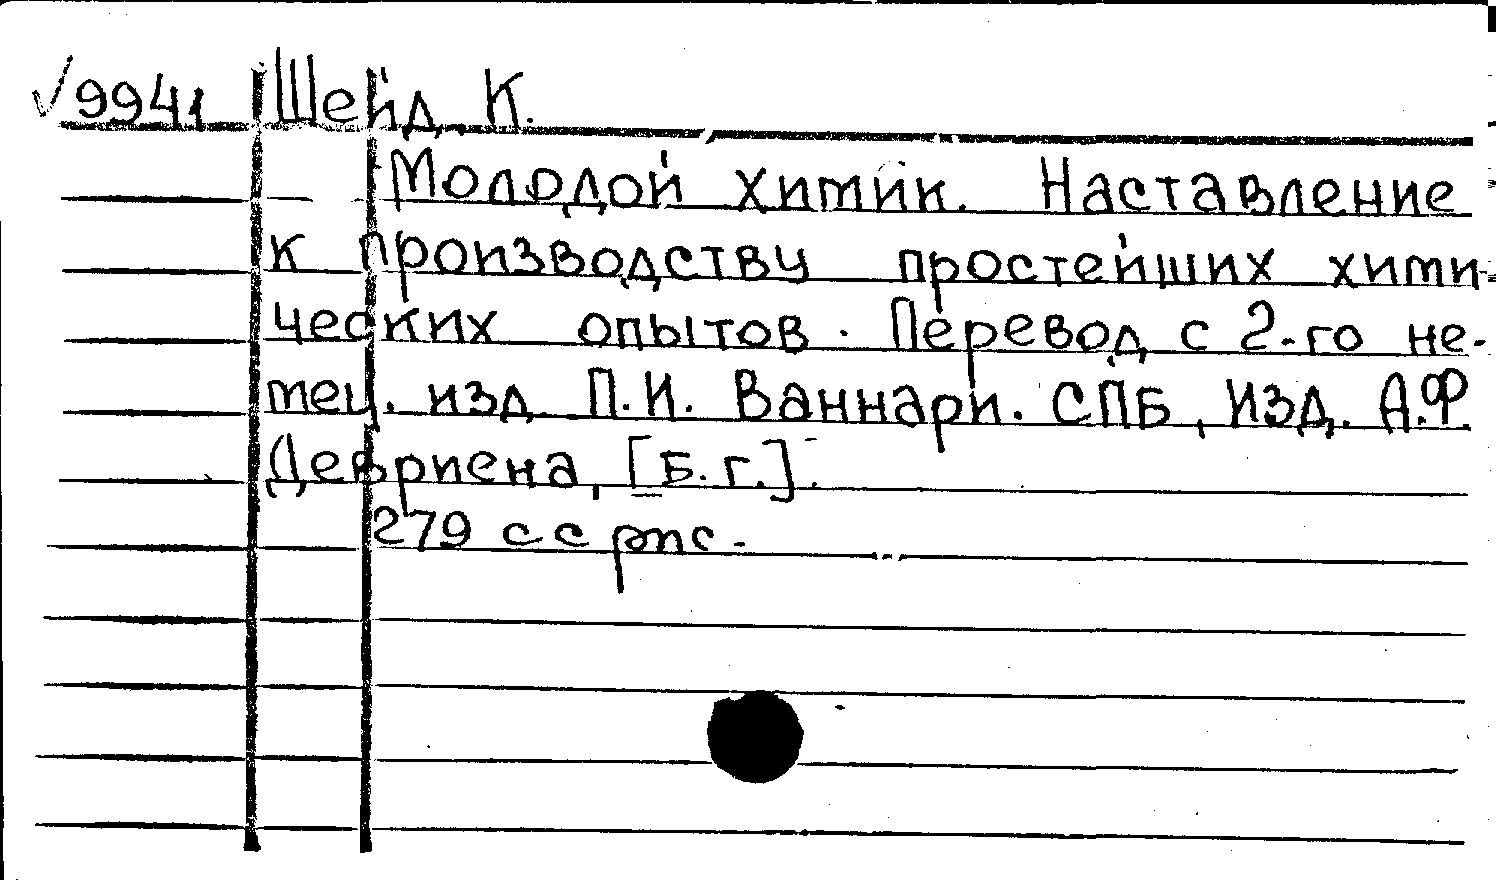 √9941 Шейд К.
Молодой химик. Наставление
к производству простейших хими-
ческих опытов. Перевод с 2-го не-
мец. изд. П.И. Ваннари. СПБ, Изд. А.Ф.
Девриена, [Б.г.].
279 с с рис.